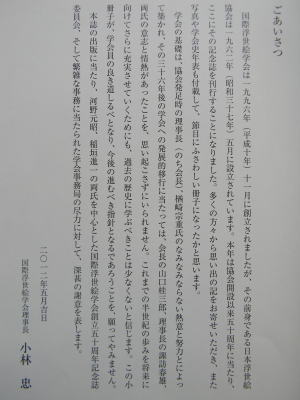 ごあいさつ
国際浮世絵学会は一九九八年（平成十年）十一月に創立されましたが、その前身である日本浮世絵
協会は一九六二年（昭和三十七年）五月に設立されています。本年は協会開設以来五十周年に当たり、
ここにその記念誌を刊行することになりました。多くの方々から思い出の記をお寄せいただき、また
写真や学会史年表も付載して、節目にふさわしい冊子になったかと思います。
学会の基礎は、協会発足時の理事長（のち会長）楢崎宗重氏のなみなみならない熱意と努力とによっ
て築かれ、その三十六年後の学会への発展的移行に当たっては、会長の山口桂三郎、理事長の諏訪春雄、
両氏の意志と情熱があったことを、思い起こさずにいられません。これまでの半世紀の歩みを将来に
向けてさらに充実させていくためにも、過去の歴史に学ぶべきことは少なくないと信じます。この小
冊子が、学会員の良き道しるべとなり、今後の進むべき指針となるであろうことを、願ってやみません。
本誌の出版に当たり、河野元昭、稲垣進一の両氏を中心とした国際浮世絵学会創立五十周年記念誌
委員会、そして繁雑な事務に当たられた学会事務局の尽力に対して、深甚の謝意を表します。
二〇一二年五月吉日
国際浮世絵学会理事長　小林　忠